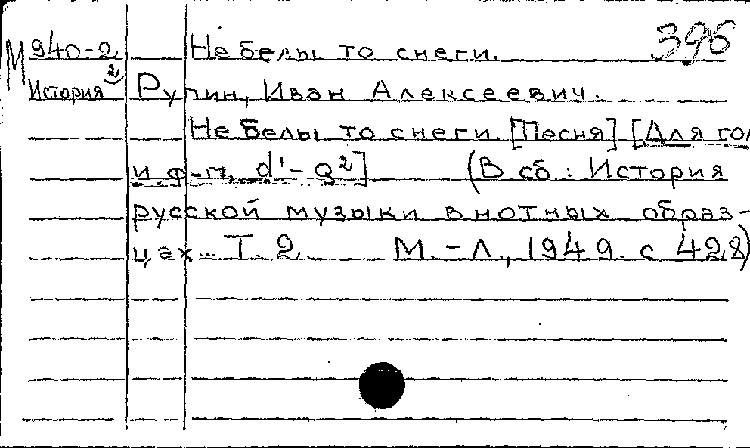 396
М 940-2 Не белы то снеги.
История 2 Рупин, Иван Алексеевич.
Не белы то снеги. [Песня] [Для гол
и ф-п. d'-g²] (В сб.: История
русской музыки в нотных образ-
цах... Т. 2 М.-Л., 1949. с 428)